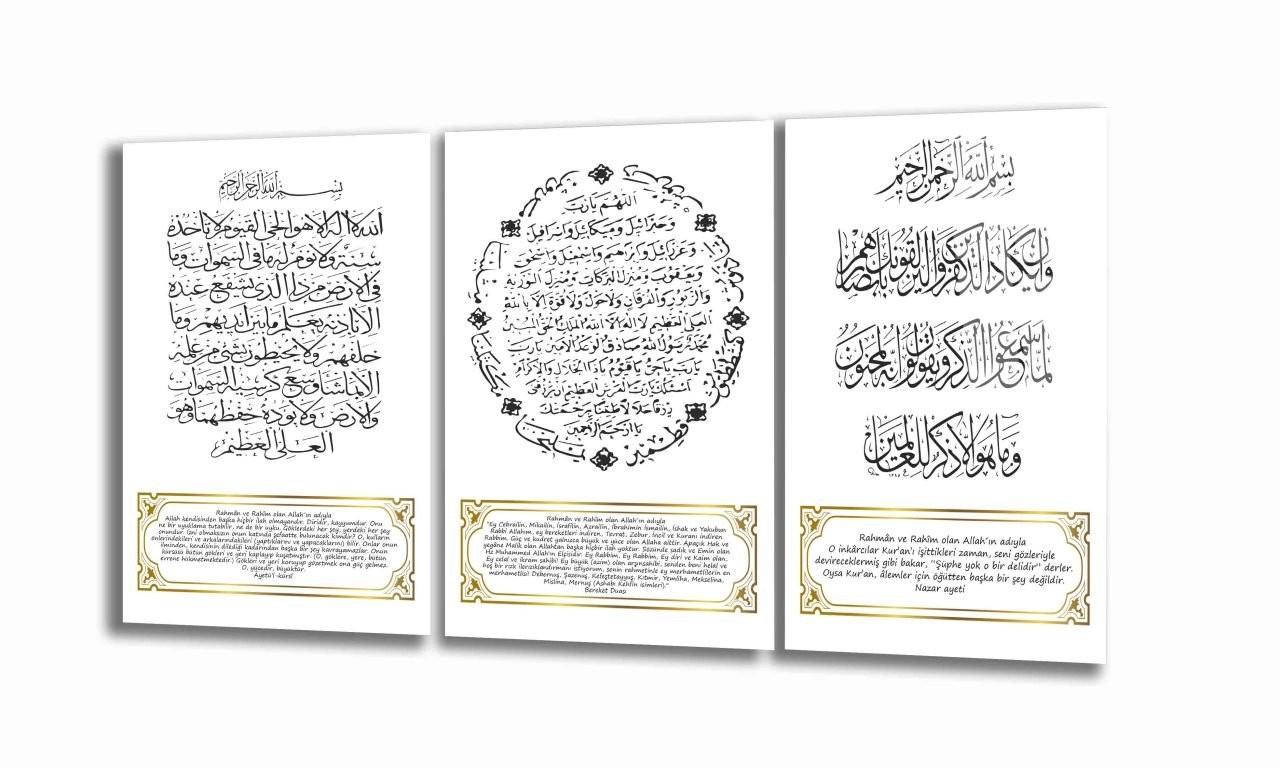 بسم الله الرحمن الرحيم
الله لا اله الا هو الحي القيوم لا تأخذه
سنة ولا نوم له ما في السموات وما
في الارض من ذا الذي يشفع عنده
الا باذنه يعلم ما بين ايديهم وما
خلفهم ولا يحيطون بشئ من علمه
الا بما شاء وسع كرسيه السموات
والارض ولا يؤده حفظهما وهو
العلي العظيم
Rahmân ve Rahîm olan Allah'ın adıyla
Allah kendisinden başka hiçbir ilah olmayandır. Diridir, kayyumdur. Onu
ne bir uyuklama tutabilir, ne de bir uyku. Göklerdeki her şey, yerdeki her şey
onundur. İzni olmaksızın onun katında şefaatte bulunacak kimdir? O, kulların
önlerindekileri ve arkalarındakileri (yaptıklarını ve yapacaklarını) bilir. Onlar onun
ilminden, kendisinin dilediği kadarından başka bir şey kavrayamazlar. Onun
kürsüsü bütün gökleri ve yeri kaplayıp kuşatmıştır. (O, göklere, yere, bütün
evrene hükmetmektedir.) Gökleri ve yeri koruyup gözetmek ona güç gelmez.
O, yücedir, büyüktür.
Âyetü'l-kürsî
اللهم يارب
وجبرائيل وميكائيل واسرافيل
وعزرائيل وابراهيم واسمعيل واسحق
ويعقوب ومنزل البركات ومنزل التورية
والزبور والفرقان ولا حول ولا قوة الا بالله
العلي العظيم لا اله الا الله الملك الحق المبين
محمد رسول الله صادق الوعد الامين يارب
يارب ياحي ياقيوم ياذا الجلال والاكرام
اسئلك يارب العرش العظيم ان ترزقني
رزقا حلالا طيبا برحمتك
يا ارحم الراحمين
قطمير
Rahmân ve Rahîm olan Allah'ın adıyla
"Ey Cebrailin, Mikailin, İsrafilin, Azrailin, İbrahimin İsmailin, İshak ve Yakubun
Rabbi Allahım, ey bereketleri indiren, Tevrat, Zebur, İncil ve Kuranı indiren
Rabbim, Güç ve kudret yalnızca büyük ve yüce olan Allaha aittir. Apaçık Hak ve
yegâne Malik olan Allahdan başka hiçbir ilah yoktur. Sözünde sadık ve Emin olan
Hz Muhammed Allah'ın Elçisidir. Ey Rabbim, Ey Rabbim, Ey diri ve Kaim olan,
Ey celal ve ikram sahibi! Ey büyük (azim) olan arşınsahibi, senden beni helal ve
hoş bir rızk ilerızıklandırmanı istiyorum, senin rahmetinle ey merhametlilerin en
merhametlisi! Debernuş, Şazenuş, Kefeştetayyuş, Kıtmir, Yemliha, Mekselina,
Mislina, Mernuş (Ashabı Kehfin isimleri)."
Bereket Duası
بسم الله الرحمن الرحيم
وان يكاد الذين كفروا ليزلقونك بابصارهم
لما سمعوا الذكر ويقولون انه لمجنون
وما هو الا ذكر للعالمين
Rahmân ve Rahîm olan Allah'ın adıyla
O inkârcılar Kur'an'ı işittikleri zaman, seni gözleriyle
devireceklermiş gibi bakar, "Şüphe yok o bir delidir" derler.
Oysa Kur'an, âlemler için öğütten başka bir şey değildir.
Nazar ayeti